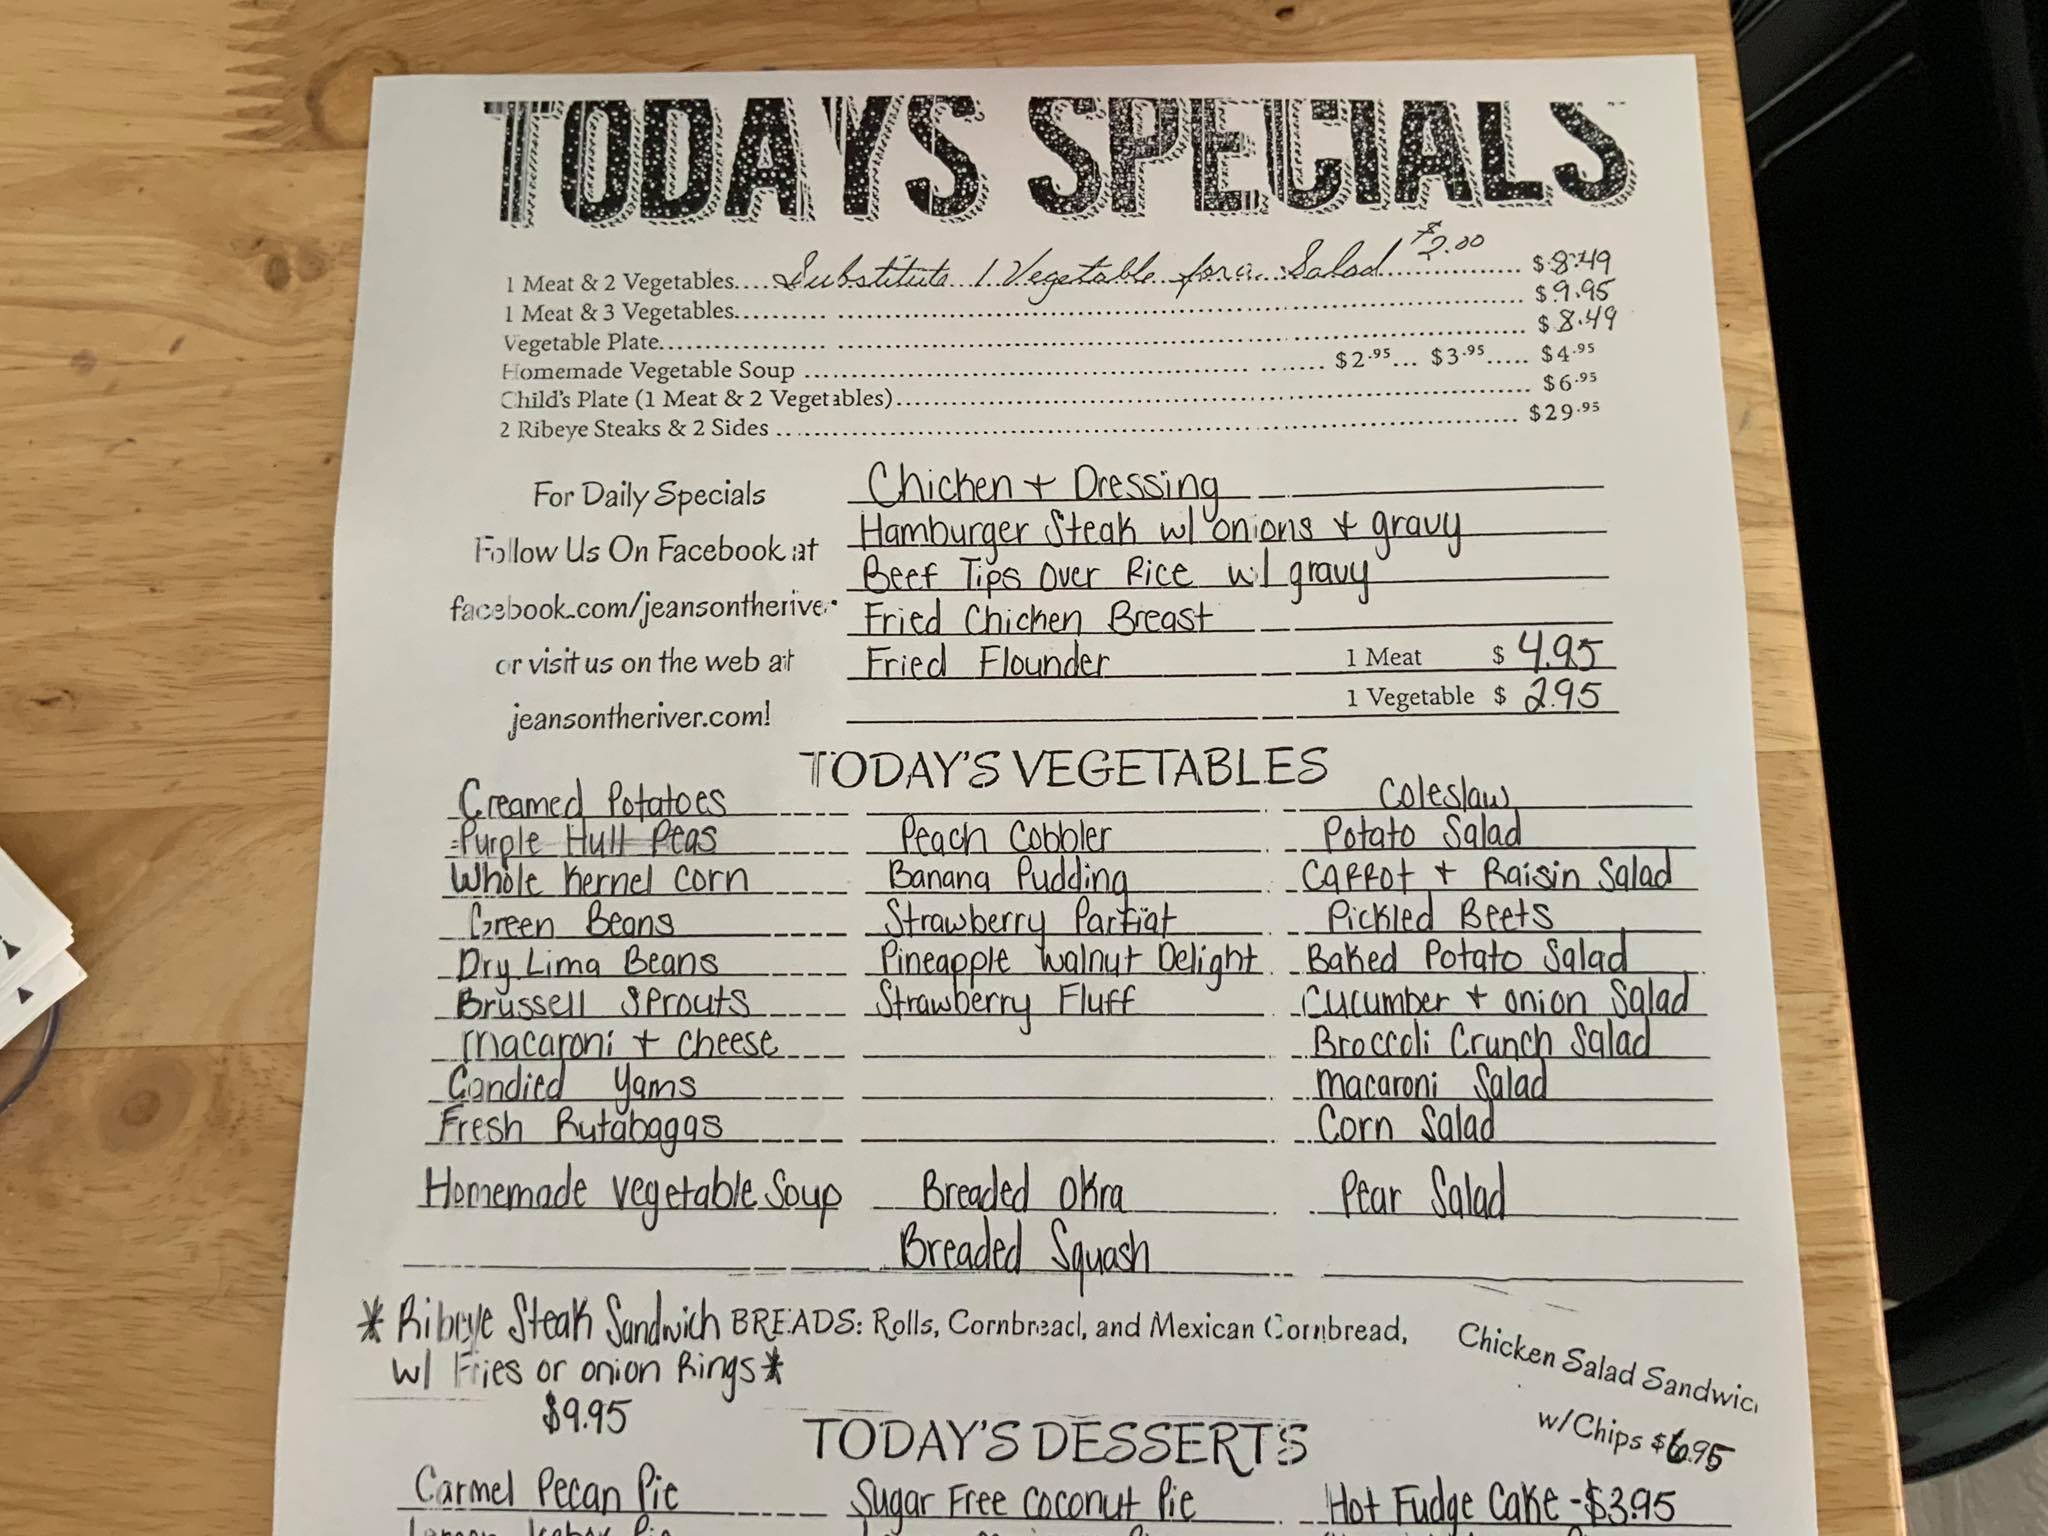 TODAYS SPECIALS
Substitute 1 Vegetable for a Salad $2.00
1 Meat & 2 Vegetables.... $8.49
1 Meat & 3 Vegetables.......... $9.95
Vegetable Plate.................... $8.49
Homemade Vegetable Soup .......... $2.95... $3.95..... $4.95
Child's Plate (1 Meat & 2 Vegetables).......... $6.95
2 Ribeye Steaks & 2 Sides .......... $29.95
For Daily Specials
Follow Us On Facebook at
facebook.com/jeansontheriver
or visit us on the web at
jeansontheriver.com!
Chicken + Dressing
Hamburger Steak w/ onions + gravy
Beef Tips Over Rice w/ gravy
Fried Chicken Breast
Fried Flounder
1 Meat $ 4.95
1 Vegetable $ 2.95
TODAY'S VEGETABLES
Creamed Potatoes
Purple Hull Peas
Whole Kernel Corn
Green Beans
Dry Lima Beans
Brussell Sprouts
Macaroni + Cheese
Candied Yams
Fresh Rutabagas
Homemade Vegetable Soup
Peach Cobbler
Banana Pudding
Strawberry Parfiat
Pineapple Walnut Delight
Strawberry Fluff
Breaded Okra
Breaded Squash
Coleslaw
Potato Salad
Carrot + Raisin Salad
Pickled Beets
Baked Potato Salad
Cucumber + Onion Salad
Broccoli Crunch Salad
Macaroni Salad
Corn Salad
Pear Salad
*Ribeye Steak Sandwich
w/ Fries or Onion Rings*
$9.95
BREADS: Rolls, Cornbread, and Mexican Cornbread,
Chicken Salad Sandwic
w/Chips $6.95
TODAY'S DESSERTS
Carmel Pecan Pie
Sugar Free Coconut Pie
Hot Fudge Cake - $3.95